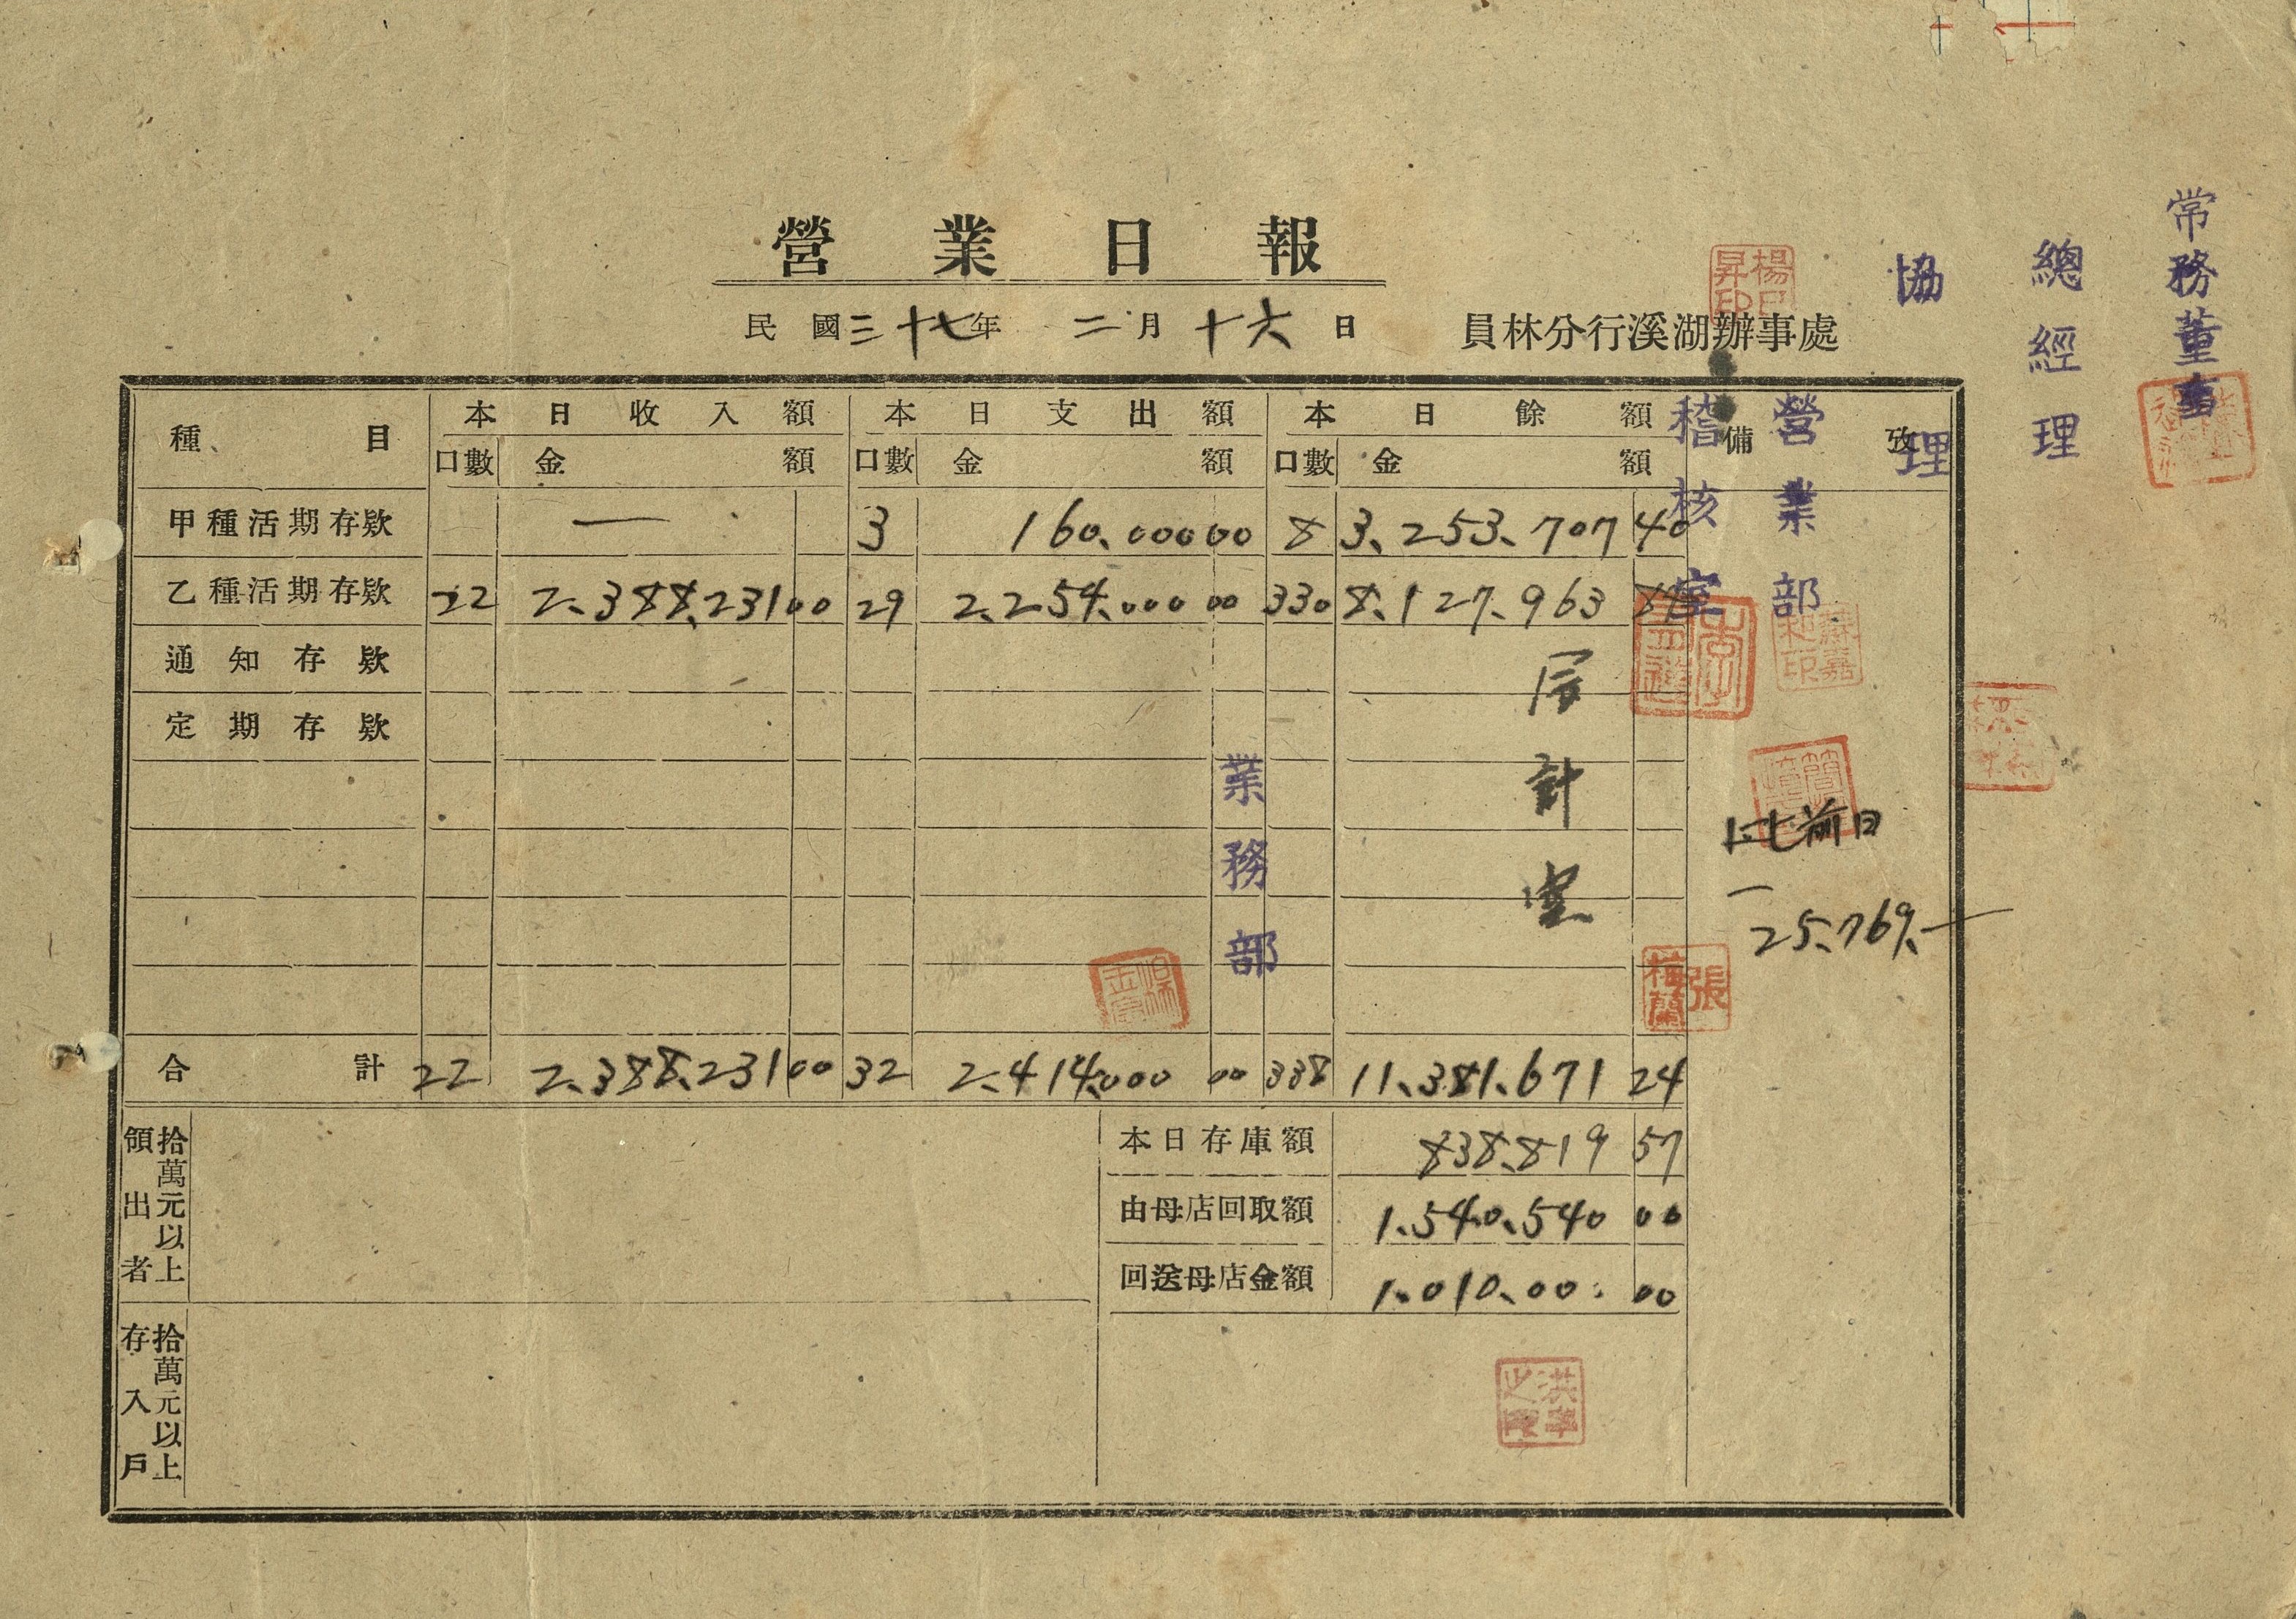 營業日報
民國三十七年 二月十六日
員林分行溪湖辦事處
常務董事
總經理
協理
營業部
稽核室
種目 本日收入額 本日支出額 本日餘額 備攷
口數 金額 口數 金額 口數 金額
甲種活期存欵 — 3 160,000 00 8 3,253,707 40
乙種活期存欵 22 2,388,231 00 29 2,254,000 00 330 8,127,963 84
通知存欵
定期存欵
業務部
計室
比前日
一
25,769.—
張梅蘭
合計 22 2,388,231 00 32 2,414,000 00 338 11,381,671 24
拾萬元以上領出者
本日存庫額 838,819 57
由母店回取額 1,540,540 00
回送母店金額 1,010,00 00
拾萬元以上存入戶